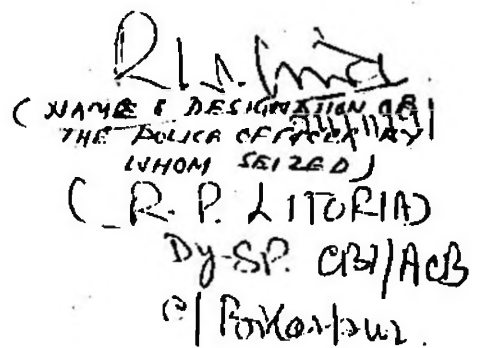 ( NAME & DESIGNATION OF
THE POLICE OFFICER BY
WHOM SEIZED )
( R. P. LITORIA)
Dy-SP. CBI/ACB